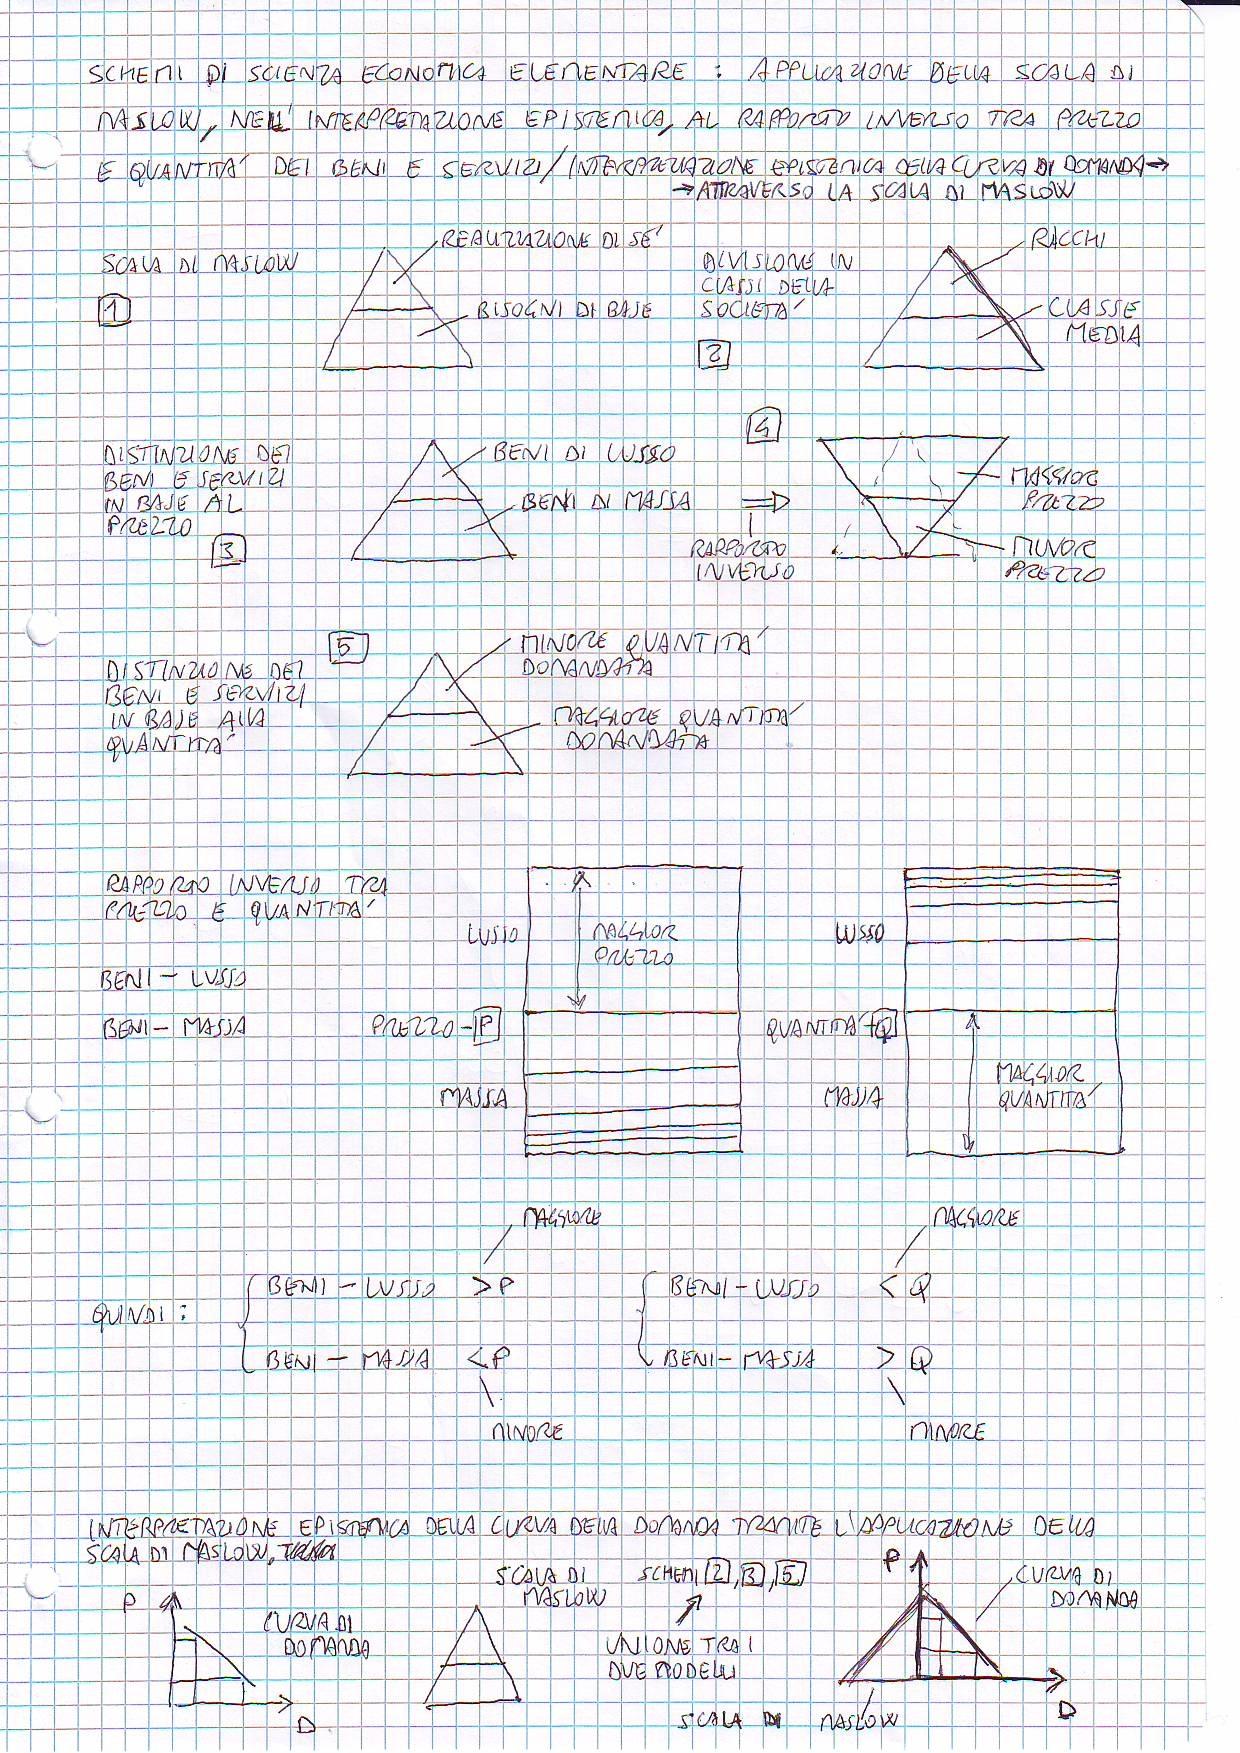 SCHEMI DI SCIENZA ECONOMICA ELEMENTARE : APPLICAZIONE DELLA SCALA DI
MASLOW, NELL' INTERPRETAZIONE EPISTEMICA, AL RAPPORTO INVERSO TRA PREZZO
E QUANTITA' DEI BENI E SERVIZI/INTERPRETAZIONE EPISTEMICA DELLA CURVA DI DOMANDA→
→ATTRAVERSO LA SCALA DI MASLOW
SCALA DI MASLOW
1
REALIZZAZIONE DI SE'
BISOGNI DI BASE
DIVISIONE IN
CLASSI DELLA
SOCIETA'
2
RICCHI
CLASSE
MEDIA
DISTINZIONE DEI
BENI E SERVIZI
IN BASE AL
PREZZO
3
BENI DI LUSSO
BENI DI MASSA
RAPPORTO
INVERSO
4
MAGGIOR
PREZZO
MINOR
PREZZO
DISTINZIONE DEI
BENI E SERVIZI
IN BASE ALLA
QUANTITA'
5
MINORE QUANTITA'
DOMANDATA
MAGGIORE QUANTITA'
DOMANDATA
RAPPORTO INVERSO TRA
PREZZO E QUANTITA'
BENI - LUSSO
BENI - MASSA
LUSSO
MAGGIOR
PREZZO
PREZZO - P
MASSA
LUSSO
QUANTITA' - Q
MASSA
MAGGIOR
QUANTITA'
MAGGIORE
MAGGIORE
QUINDI :
BENI - LUSSO > P
BENI - MASSA < P
MINORE
BENI - LUSSO < Q
BENI - MASSA > Q
MINORE
INTERPRETAZIONE EPISTEMICA DELLA CURVA DELLA DOMANDA TRAMITE L'APPLICAZIONE DELLA
SCALA DI MASLOW,
P
CURVA DI
DOMANDA
D
SCALA DI
MASLOW
SCHEMI 2, 3, 5
UNIONE TRA I
DUE MODELLI
P
CURVA DI
DOMANDA
D
SCALA DI MASLOW